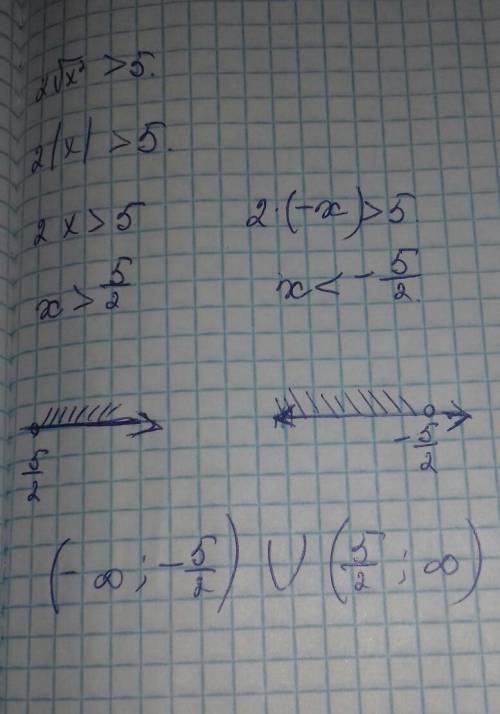 2√x² > 5.
2|x| > 5.
2x > 5 2·(-x) > 5
x > 5/2 x < - 5/2.
5/2 - 5/2
(-∞; -5/2) ∪ (5/2; ∞)